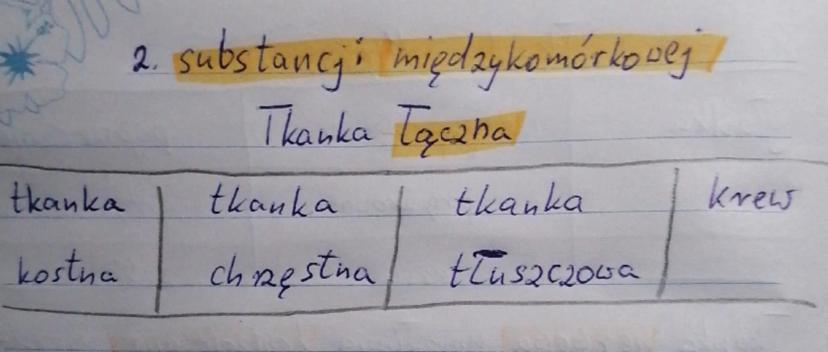 2. substancji międzykomórkowej
Tkanka łączna
tkanka tkanka tkanka krew
kostna chrzęstna tłuszczowa